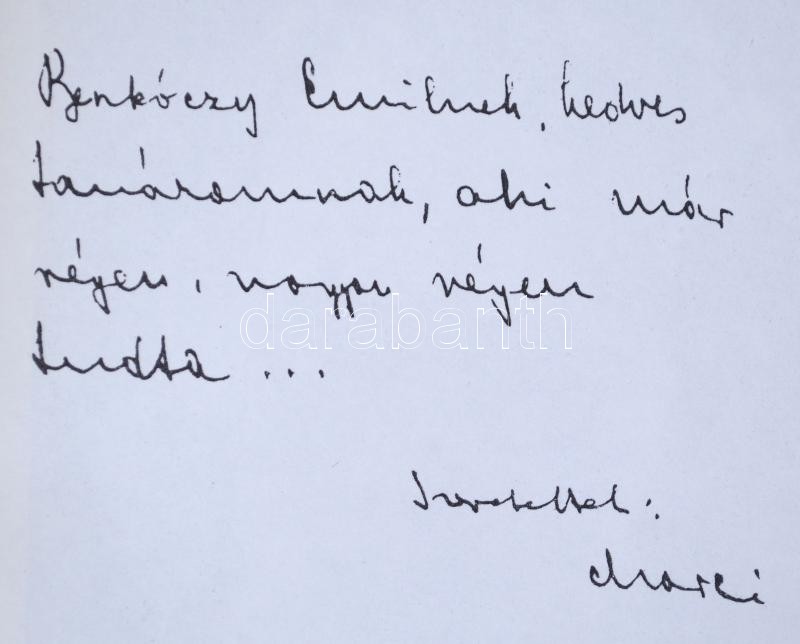 Benkóczy Emilnek, kedves
tanáromnak, aki már
régen, nagyon régen
darabanth
tudta ...
Szeretettel:
Marci